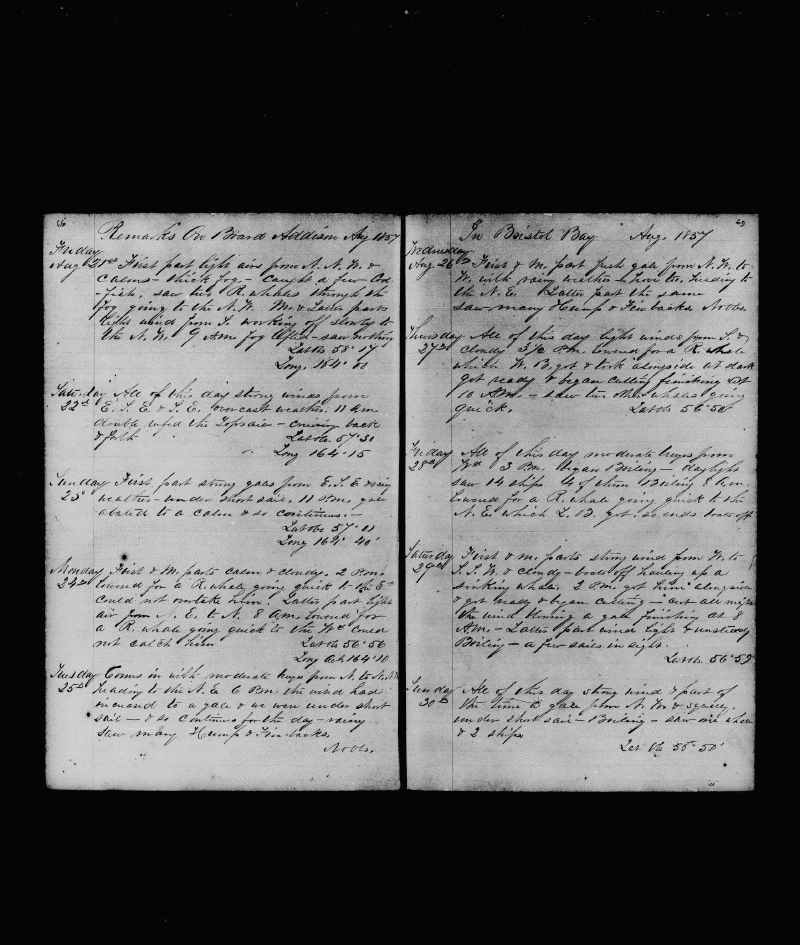 Remarks On Board Addison Aug 1857
Friday
Aug 21st First part light airs from N. N. W. &
calms - thick fog - caught a few Cod
-fish, saw two R. whales through the
fog going to the N. W. M & Latter parts
light wind from S. working off slowly to
the N. W. 9 A.M. fog lifted - saw nothing
Lat Ob 58° 17'
Long. 164° 00
Saturday All of this day strong winds from
22nd E. S. E. & S. E. overcast weather. 11 A.M.
double reefed the Topsails - cruising back
& forth Lat Ob. 57° 30
Long 164° 15
Sunday First part strong gales from E. S. E & rainy
23d weather - under short sail. 11 P.M. gale
abated to a calm & so continues. -
Lat Obs 57° 01
Long 164° 40'
Monday First & M. parts calm & cloudy. 2 P.M.
24th lowered for a R. whale, going quick to the Ed
could not overtake him. Latter part light
air from N. E. to N. 8 A.M. lowered for
a R. whale going quick to the Wd could
not catch him Lat Ob 56° 56
Long 164° 10
Tuesday Comes in with moderate breezes from N. to
25th heading to the N. E. 6 P.M. the wind had
increased to a gale & we were under short
sail - & so continues for the day - rainy
saw many Hump & Finbacks.
No Obs.
69
In Bristol Bay Aug. 1857
Wednesday
Aug. 26th First & M. part fresh gale from N. W. to
W. with rainy weather - hove to, heading to
the N. E. Latter part the same
saw many Hump & Finbacks. No Obs.
Thursday All of this day light winds from S. &
27th cloudy 3½ P.M. lowered for a R. whale
which W. B. got & took alongside at dark
got ready & began cutting finishing at
10 A.M. - saw two other whales going
quick. Lat Ob 56° 50'
Friday All of this day moderate breezes from
28th Wd 3 P.M. began Boiling - daylight
saw 14 ships 4 of them Boiling 8 A.M.
lowered for a R. whale going quick to the
N. E. which L. B. got. so ends boats off
Saturday First & M. parts strong wind from W. to
29th S. S. W. & cloudy - boats off hauling up a
sinking whale. 2 P.M. got him alongside
& got ready & began cutting - cut all night
the wind blowing a gale finishing at 8
A.M. - Latter part wind light & unsteady
Boiling - a few sails in sight.
Lat Ob 56° 59'
Sunday All of this day strong wind & part of
30th the time a gale from N. W. & squally.
under short sail - Boiling - saw one whale
& 2 ships
Lat Ob 56° 50'